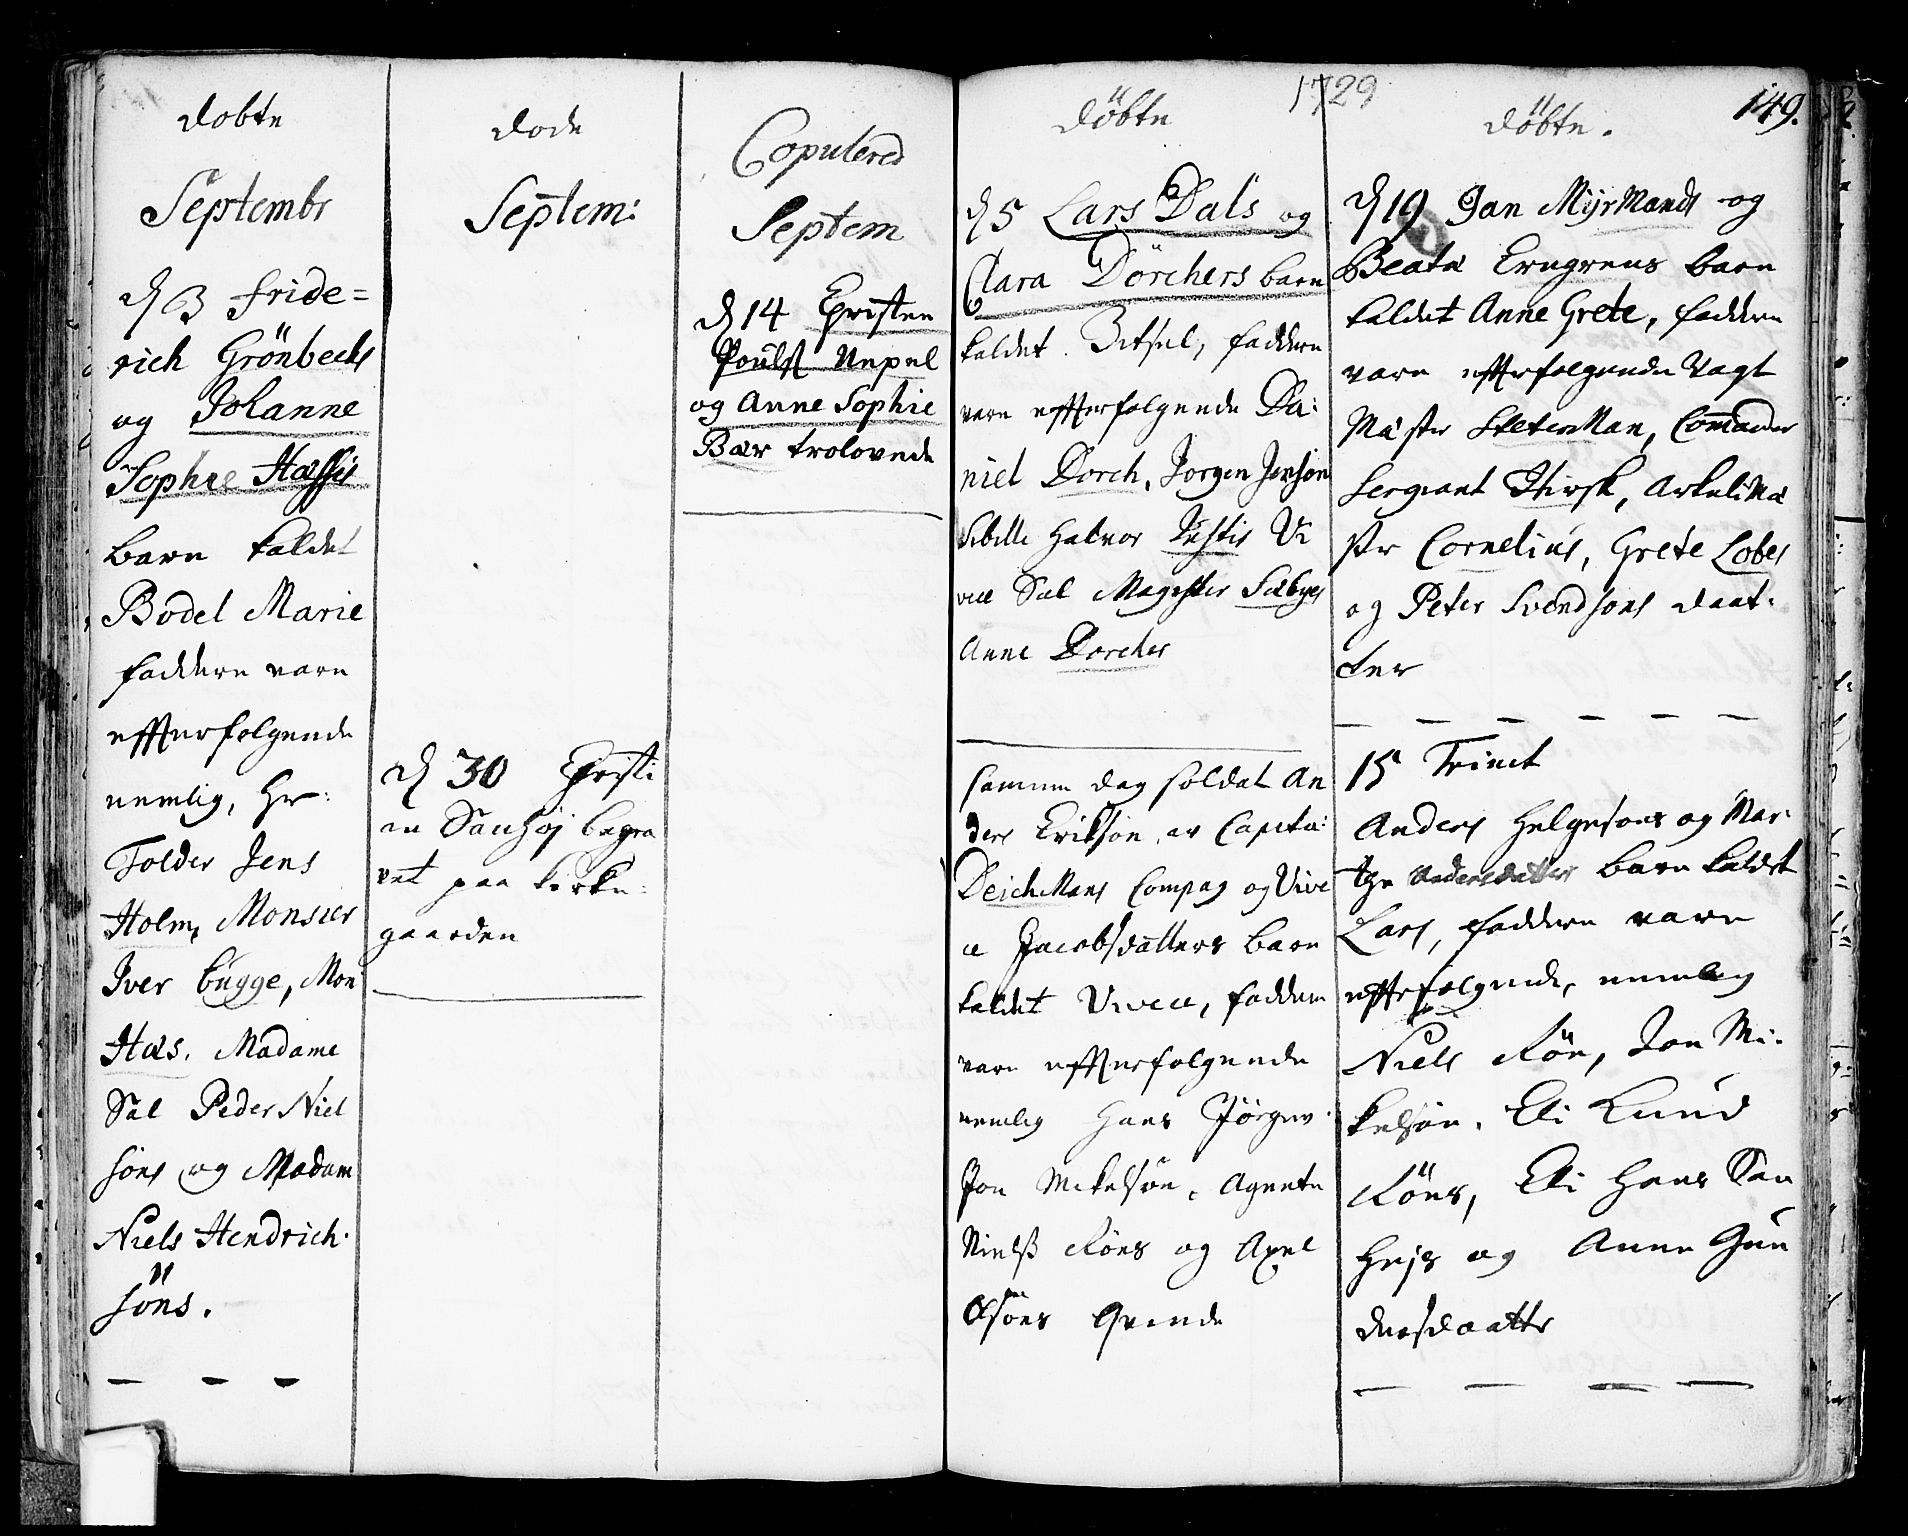 döbte
Septembr
d 3 Fride=
rich Grönbechs
og Johanne
Sophie Hassis
barn kaldet
Bodel Marie
faddere vare
effterfølgende
nemlig, Hr:
Tolder Jens
Holm, Monsier
Iver bugge, Mon:
Has, Madame
Sal Peder Niel
söns og Madam
Niels Hendrich:
söns.
döde
Septem:
d 30 Christi
an Sanhøj begra
vet paa kirke:
gaarden
Copulered
Septem
d 14 Christen
Poulss Nepel
og Anne Sophie
Bær trolovede
1729
döbte
d 5 Lars Dals og
Clara Dörchers barn
kaldet Zitsel, faddere
vare effterfølgende Da:
niel Dorch, Jorgen Jensön
Sibille Halvor Justis Vi
vee Sal Magister Sæbyes
Anne Dorcher
samme dag soldat An
ders Eriksön av Capita:
DeichMans Compag og Vive
a Jacobsdatters barn
kaldet Vivea, faddere
vare effterfølgende
nemlig Hans Jörgen
Jon Mikelsön, Agnete
Nielss Röns og Axel
Olsöns Qvinde
149.
döbte.
d 19 Jan MyrMands og
Beata Erngrens barn
kaldet Anne Grete, faddere
vare effterfølgende Vagt
Mäster SteterMan, Comander
Sergeant Hirsk, ArkeliMä
ster Cornelius, Grete Lobes
og Peter Svendsöns daat:
ter
15 Trinit
Anders Helgesöns og Mar:
the Andersdatter barn kaldet
Lars, faddere vare
effterfølgende, nemlig
Niels Rön, Jon Mi:
kelsön, Eli Knud
Röns, Eli Hans San
Hejs og Anne Gun
dersdaatter